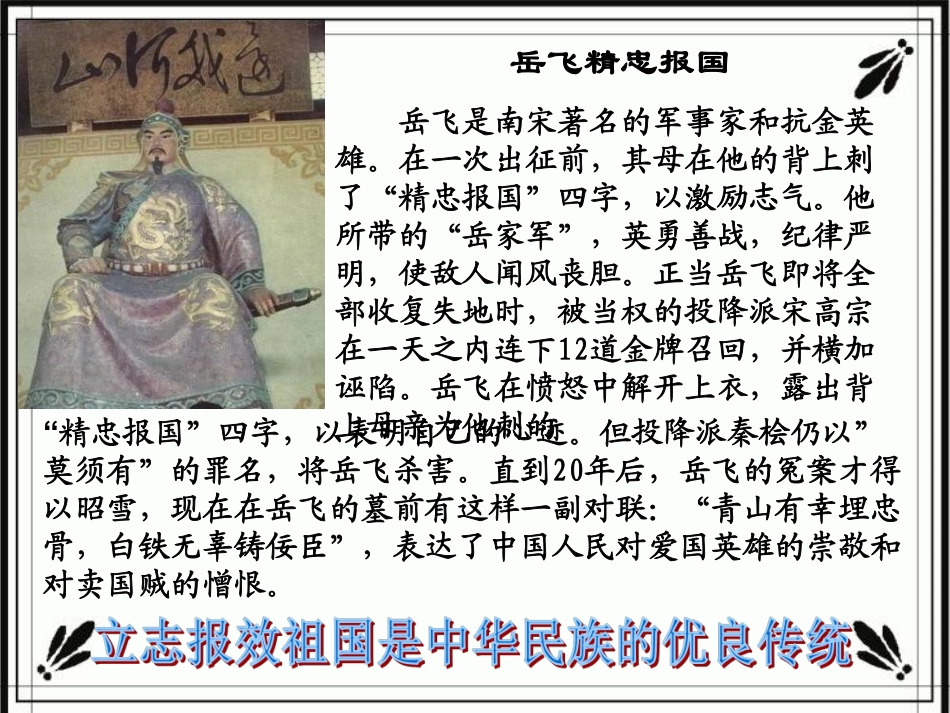 还我河山
岳飞精忠报国
岳飞是南宋著名的军事家和抗金英
雄。在一次出征前，其母在他的背上刺
了“精忠报国”四字，以激励志气。他
所带的“岳家军”，英勇善战，纪律严
明，使敌人闻风丧胆。正当岳飞即将全
部收复失地时，被当权的投降派宋高宗
在一天之内连下12道金牌召回，并横加
诬陷。岳飞在愤怒中解开上衣，露出背
上母亲为他刺的
“精忠报国”四字，以表明自己的心迹。但投降派秦桧仍以”
莫须有”的罪名，将岳飞杀害。直到20年后，岳飞的冤案才得
以昭雪，现在在岳飞的墓前有这样一副对联：“青山有幸埋忠
骨，白铁无辜铸佞臣”，表达了中国人民对爱国英雄的崇敬和
对卖国贼的憎恨。
立志报效祖国是中华民族的优良传统